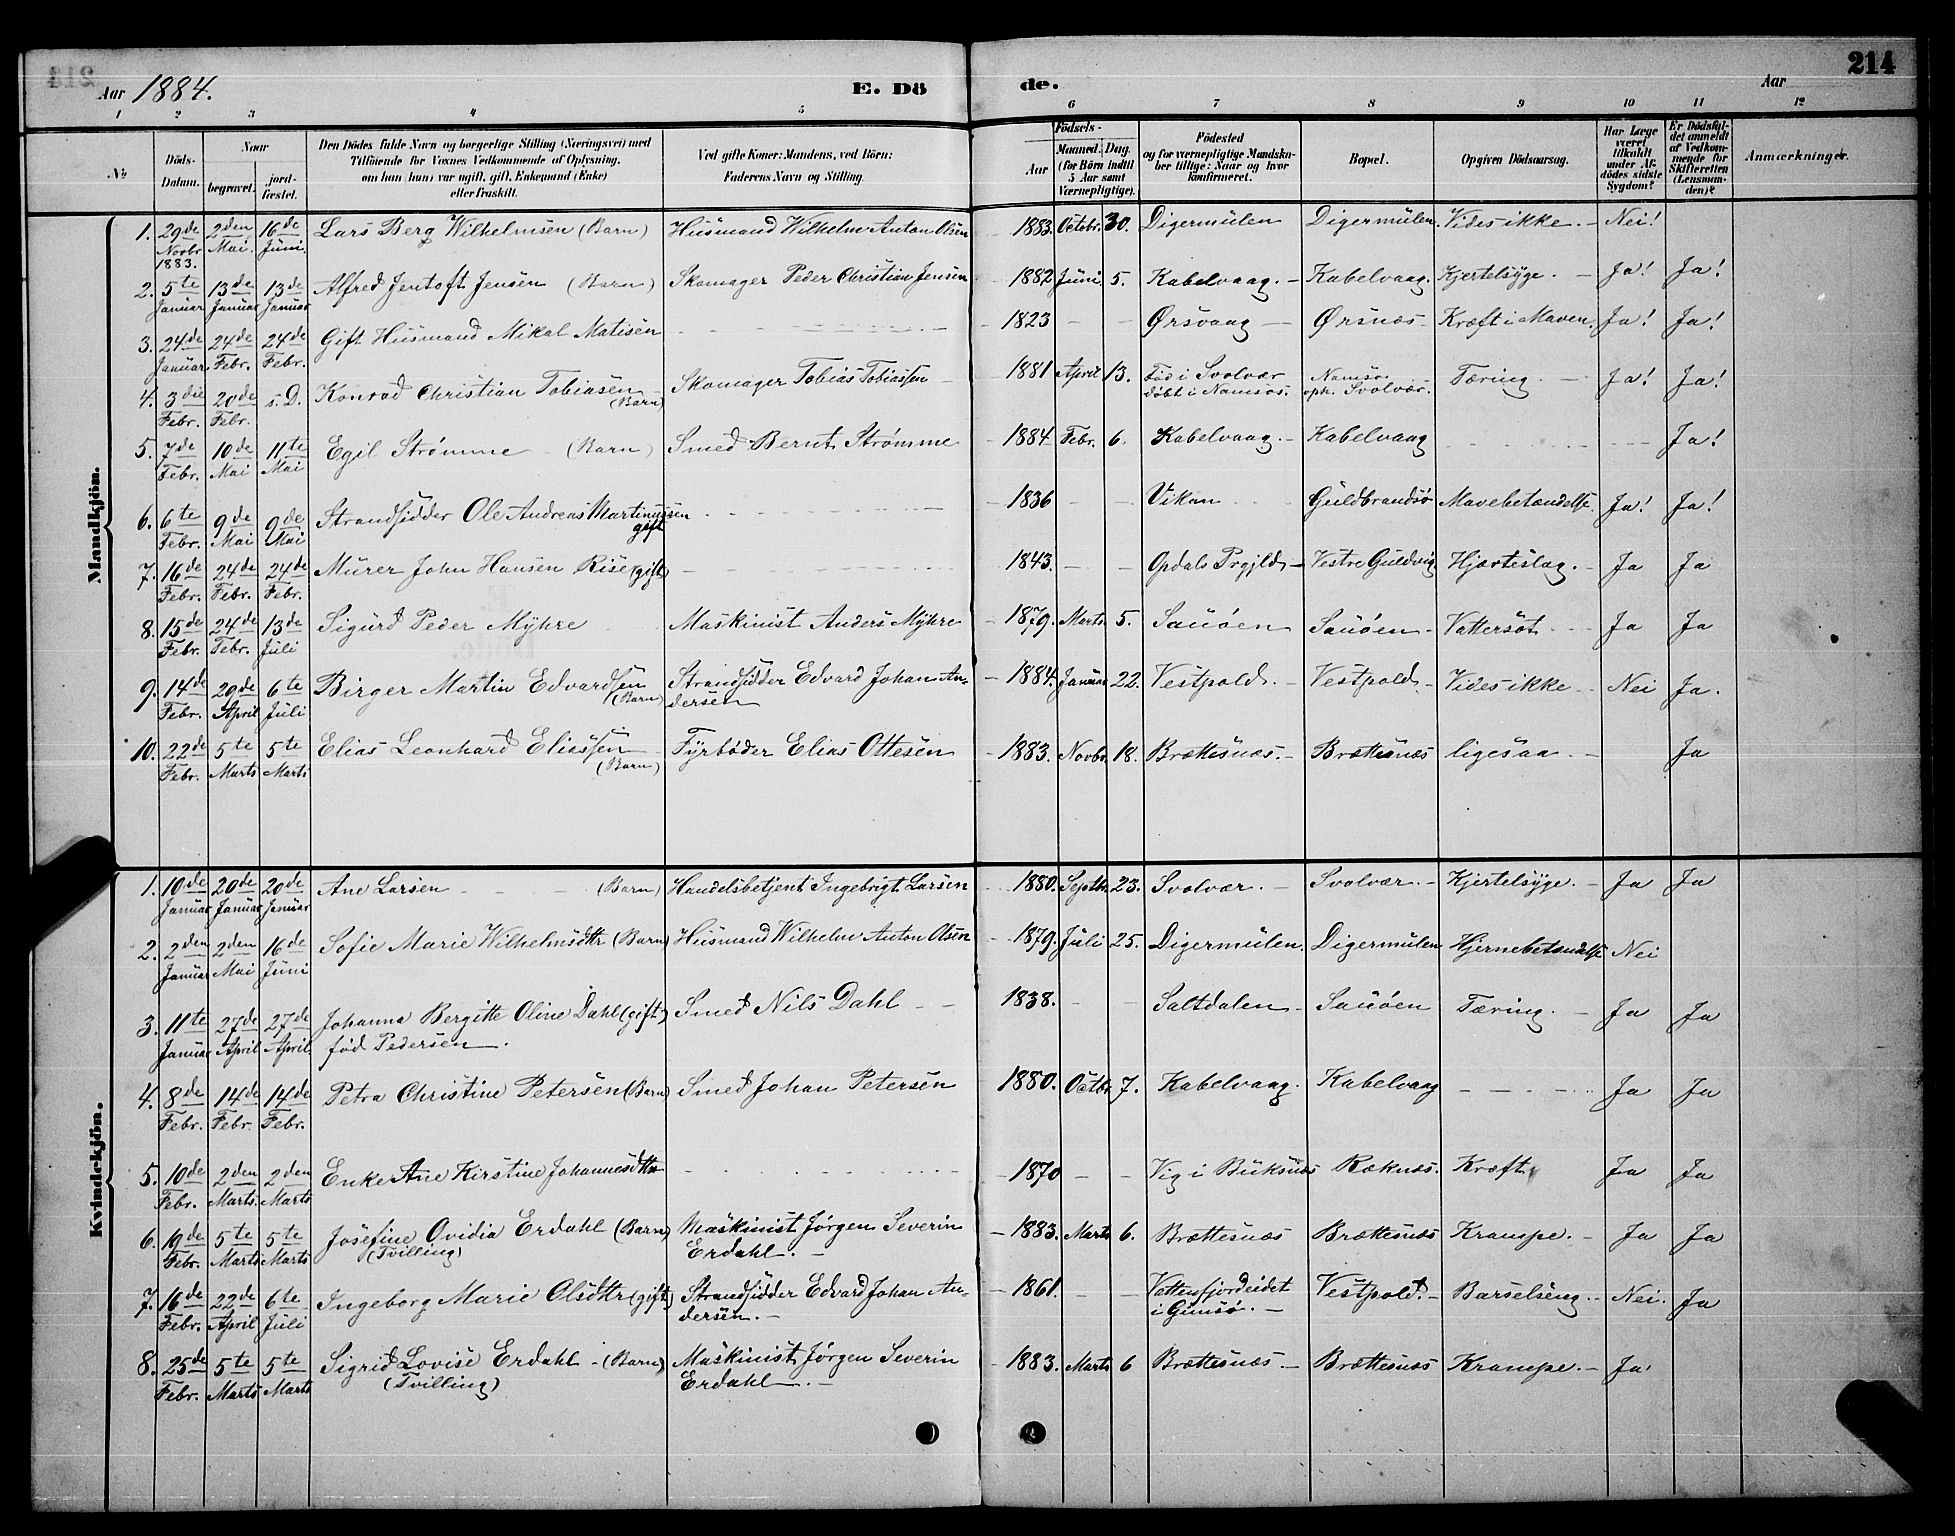 214
Aar 1884. E. Dö de. Aar
1 2 3 4 5 6 7 8 9 10 11 12
No
Döds-Datum.
Naar
begravet.
jordfæstet.
Den Dödes fulde Navn og borgerlige Stilling (Næringsvei) med
Tilföiende for Voxnes Vedkommende af Oplysning,
om han (hun) var ugift, gift, Enkemand (Enke)
eller fraskilt.
Ved gifte Koner: Mandens, ved Börn:
Faderens Navn og Stilling.
Födsels-
Aar
Maaned. Dag.
(for Börn indtil
5 Aar samt
Værnepligtige).
Födested
og for værnepligtige Mandska-
ber tillige: Naar og hvor
konfirmeret.
Bopæl.
Opgiven Dödsaarsag.
Har Læge
været
tilkaldt
under Af-
dödes sidste
Sygdom?
Er Dödsfal-
det anmeldt
af Vedkom-
mende for
Skifteretten
(Lensman-
den)?
Anmærkninger.
Mandkjön.
1. 29de Novbr 1883. 2den Mai. 16de Juni. Lars Berg Wilhelmsen (Barn) Husmand Wilhelm Anton Olsen 1883. Octobr. 30. Digermulen Digermulen. Vides ikke. Nei!
2. 5te Januar 13de Januar 13de Januar Alfred Jentoft Jensen (Barn) Skomager Peder Christian Jensen 1882 Juni 5. Kabelvaag. Kabelvaag. Kjertelsyge. Ja! Ja!
3. 24de Januar 24de Febr. 24de Febr. Gift Husmand Mikal Matisen 1823 Ørsvaag Ørsnæs Kræft i Maven. Ja! Ja!
4. 3die Febr. 20de Febr. s. D. Konrad Christian Tobiasen (Barn) Skomager Tobias Tobiassen 1881 April 13. Fød i Svolvær døbt i Namsos. Namsos oph. Svolvær. Tæring. Ja! Ja!
5. 7de Febr. 10de Mai 11te Mai Egil Strømme (Barn) Smed Bernt Strømme 1884 Febr. 6. Kabelvaag. Kabelvaag Ja!
6. 6te Febr. 9de Mai 9de Mai Strandsidder Ole Andreas Martinussen gift 1836 Vikan Guldbrandsø Mavebetændelse. Ja! Ja!
7. 16de Febr. 24de Febr. 24de Febr. Murer John Hansen Rise (gift) 1843. Opdals Prgjld. Vestre Guldvig Hjærteslag. Ja Ja
8. 15de Febr. 24de Febr. 13de Juli Sigurd Peder Myhre Maskinist Anders Myhre 1879. Marts 5. Sauøen Sauøen Vattersot Ja Ja
9. 14de Febr. 29de April 6te Juli Birger Martin Edvardsen (Barn) Strandsidder Edvard Johan An-
dersen 1884. Januar 22. Vestpold. Vestpold. Vides ikke Nei Ja.
10. 22de Febr. 5te Marts 5te Marts Elias Leonhard Eliassen (Barn) Fyrbøder Elias Ottesen 1883. Novbr. 18. Brættesnæs. Brættesnæs ligesaa Ja
Kvindekjön.
1. 10de Januar 20de Januar 20de Januar Ane Larsen (Barn) Handelsbetjent Ingebrigt Larsen 1880. Septbr. 23. Svolvær. Svolvær. Kjertelsyge. Ja Ja
2. 2den Januar 2den Mai 16de Juni Sofie Marie Wilhelmsdttr (Barn) Husmand Wilhelm Anton Olsen 1879. Juli 25. Digermulen. Digermulen Hjernebetændelse Nei
3. 11te Januar 27de April 27de April. Johanna Bergitte Oline Dahl (gift)
fød Pedersen. Smed Nils Dahl 1838. Saltdalen Sauøen Tæring. Ja Ja
4. 8de Febr. 14de Febr. 14de Febr. Petra Christine Petersen (Barn) Smed Johan Petersen 1880. Octbr. 7. Kabelvaag. Kabelvaag Ja Ja
5. 10de Febr. 2den Marts. 2den Marts Enke Ane Kirstine Johannesdttr 1870 Vig i Buksnæs Ræknæs. Kræft Ja Ja
6. 19de Febr. 5te Marts 5te Marts Josefine Ovidia Erdahl (Barn)
(Tvilling) Maskinist Jørgen Severin
Erdahl. 1883. Marts 6. Brættesnæs Brættesnæs Krampe. Ja Ja
7. 16de Febr. 22de April 6te Juli Ingeborg Marie Olsdttr (gift) Strandsidder Edvard Johan An-
dersen. 1861. Vattenfjordeidet
i Gimsø. Vestpold. Barselseng. Nei. Ja
8. 25de Febr. 5te Marts 5te Marts Sigrid Lovise Erdahl (Barn)
(Tvilling) Maskinist Jørgen Severin
Erdahl. 1883. Marts 6 Brættesnæs. Brættesnæs Krampe. Ja